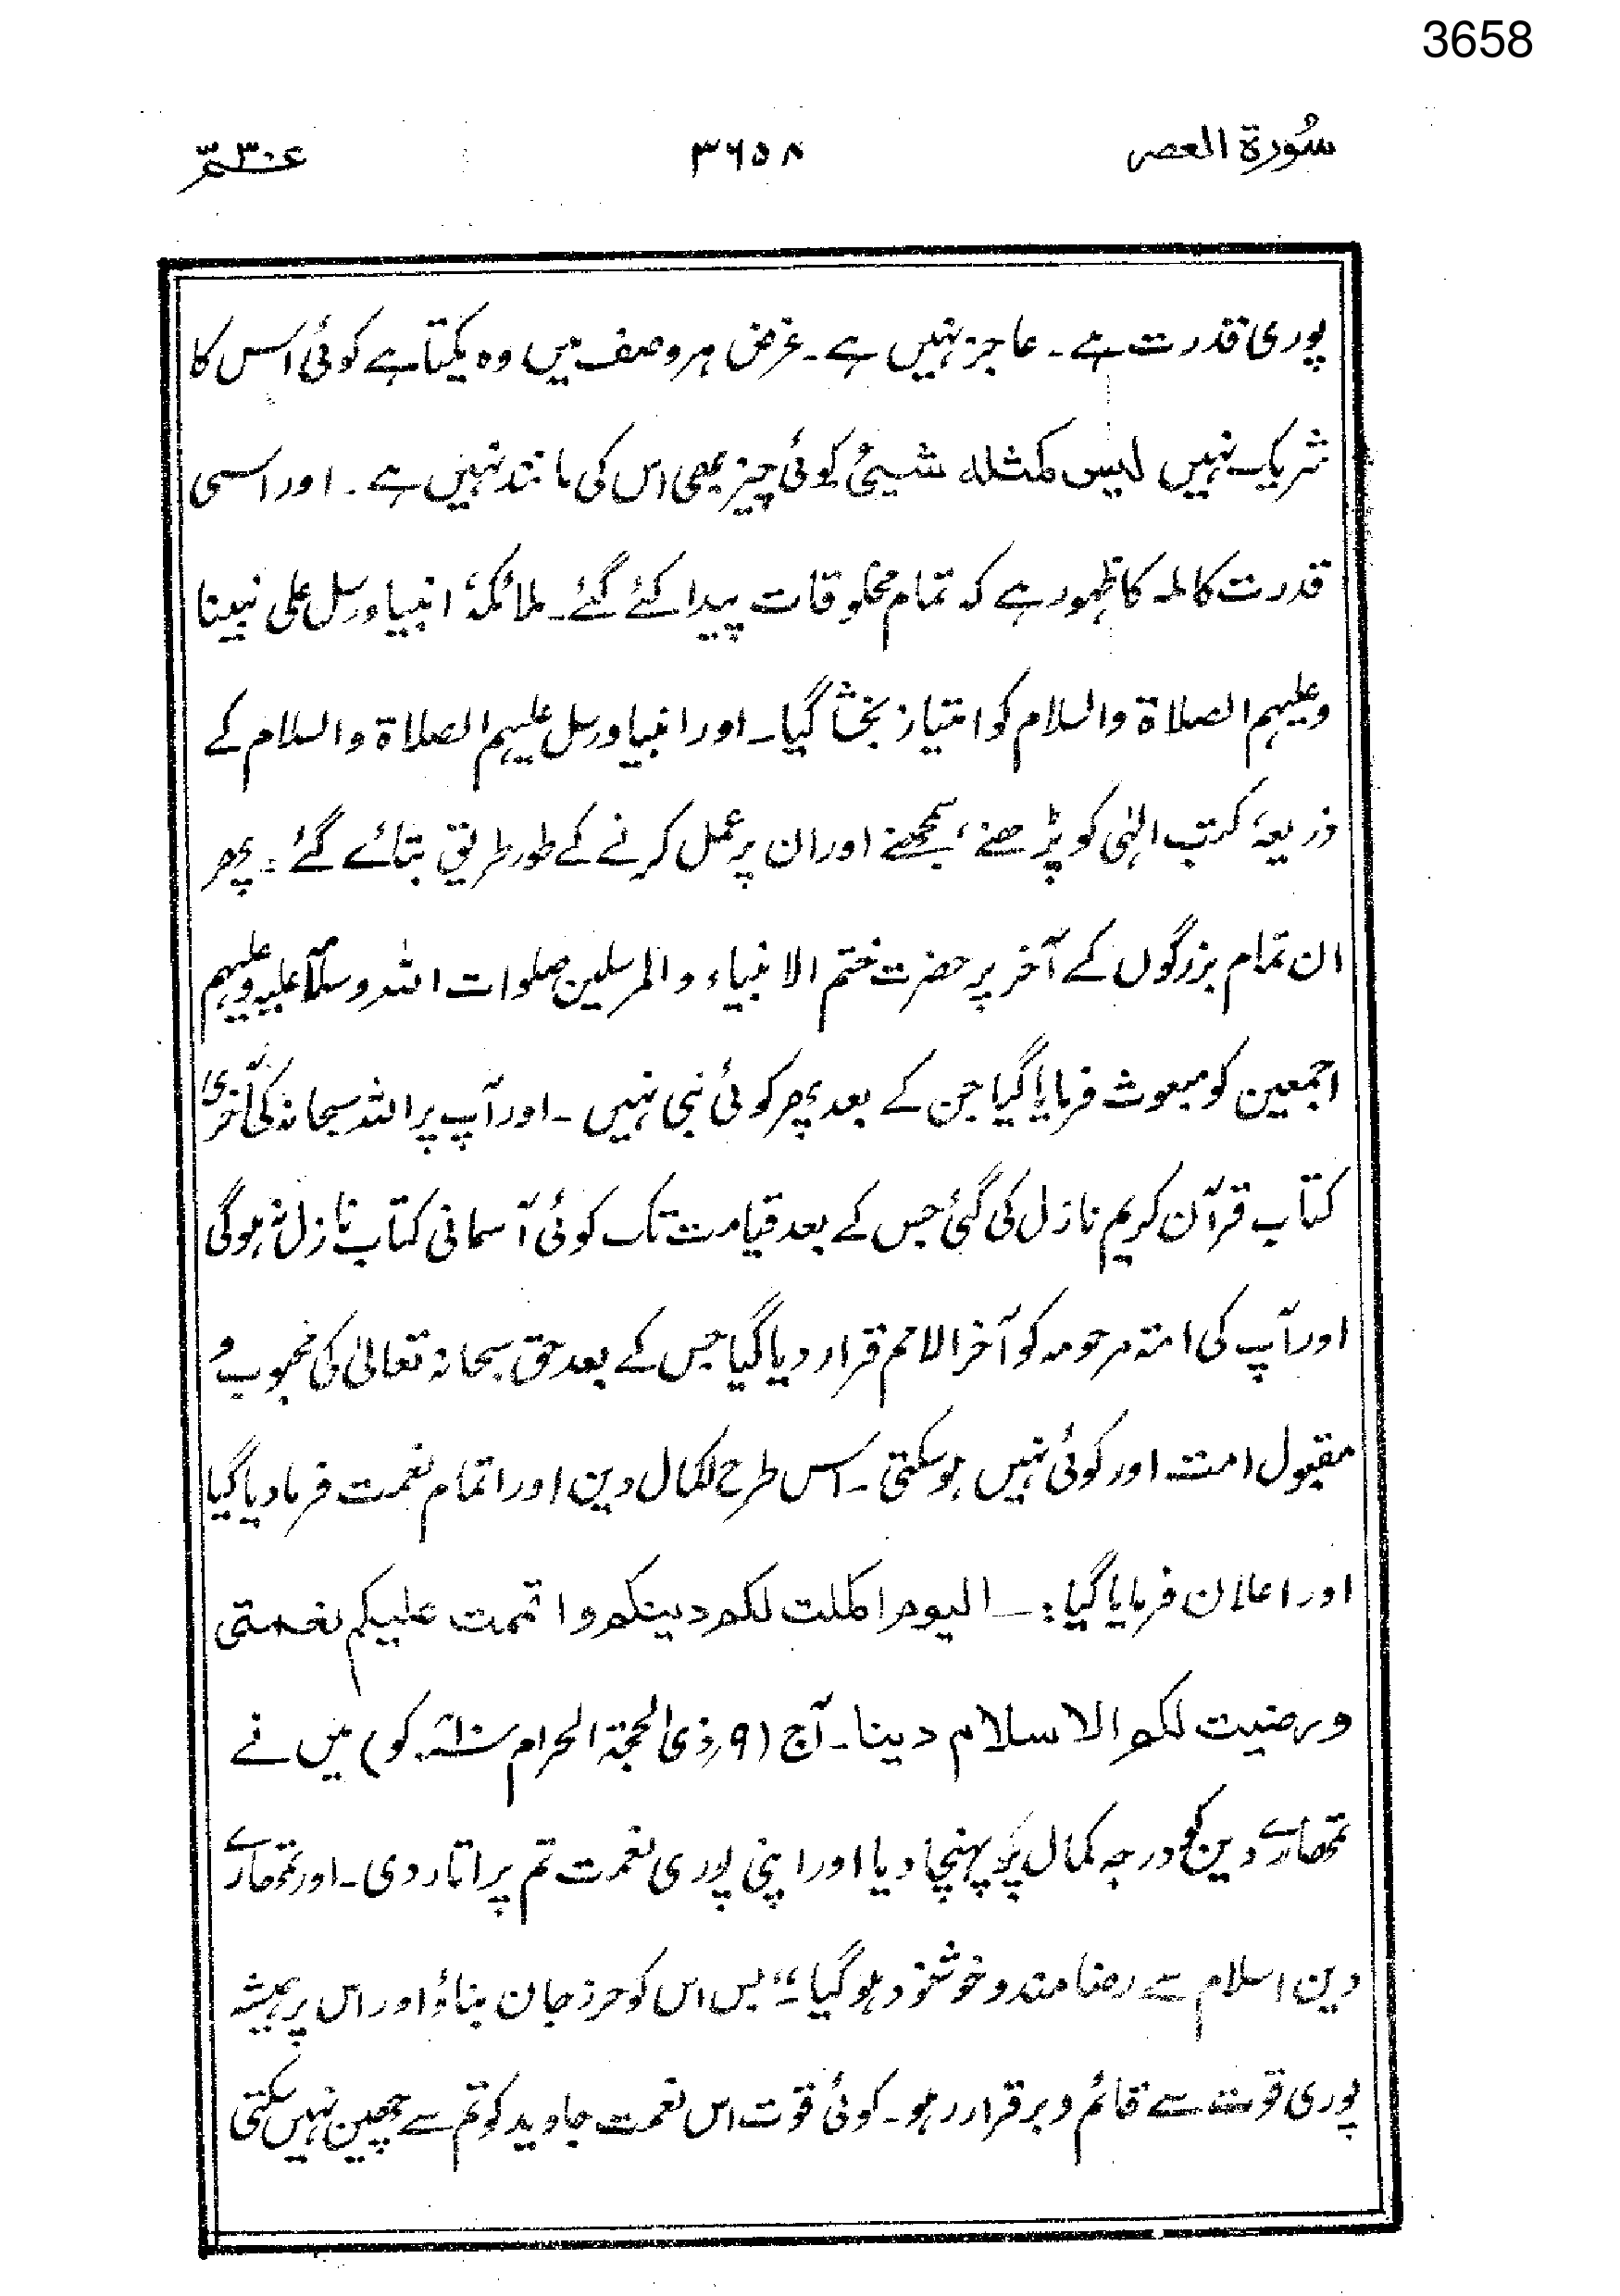 3658
سُورۃ العصر ۳۶۵۸ عمّ ۳۰
پوری قدرت ہے۔ عاجز نہیں ہے۔ غرض ہر وصف میں وہ یکتا ہے کوئی اس کا
شریک نہیں لیس کمثله شیئ کوئی چیز بھی اس کی مانند نہیں ہے۔ اور اسی
قدرت کاملہ کا ظہور ہے کہ تمام مخلوقات پیدا کئے گئے۔ ملائکہ، انبیا ورسل علی نبینا
وعلیہم الصلاۃ والسلام کو امتیاز بخشا گیا۔ اور انبیا ورسل علیہم الصلاۃ والسلام کے
ذریعۂ کتب الٰہی کو پڑھنے، سمجھنے اور ان پر عمل کرنے کے طور طریق بتائے گئے۔ پھر
ان تمام بزرگوں کے آخر پر حضرت ختم الانبیاء والمرسلین صلوات اللہ وسلامہ علیہ وعلیہم
اجمعین کو مبعوث فرمایا گیا جن کے بعد پھر کوئی نبی نہیں ۔ اور آپ پر اللہ سبحانہ کی آخری
کتاب قرآن کریم نازل کی گئی جس کے بعد قیامت تک کوئی آسمانی کتاب نازل نہ ہوگی
اور آپ کی امتہ مرحومہ کو آخر الامم قرار دیا گیا جس کے بعد حق سبحانہ تعالیٰ کی محبوب و
مقبول امت اور کوئی نہیں ہوسکتی ۔ اس طرح اکمال دین اور اتمام نعمت فرما دیا گیا
اور اعلان فرمایا گیا :۔ الیوم اکملت لکم دینکم واتممت علیکم نعمتی
ورضیت لکم الاسلام دینا۔ آج (۹؍ ذی الحجۃ الحرام سنہ ۱۰ھ کو) میں نے
تمھارے دین کو درجہ کمال پر پہنچا دیا اور اپنی پوری نعمت تم پر اتار دی۔ اور تمھارے
دین اسلام سے رضامند و خوشنود ہو گیا۔“ بس اس کو حرز جان بناؤ اور اس پر ہمیشہ
پوری قوت سے قائم و برقرار رہو۔ کوئی قوت اس نعمت جاوید کو تم سے چھین نہیں سکتی